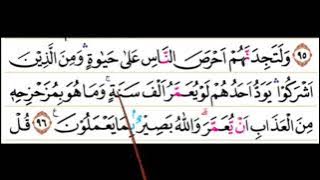 ٩٥ وَلَتَجِدَنَّهُمْ اَحْرَصَ النَّاسِ عَلٰى حَيٰوةٍ ۛ وَمِنَ الَّذِيْنَ
اَشْرَكُوْا ۛ يَوَدُّ اَحَدُهُمْ لَوْ يُعَمَّرُ اَلْفَ سَنَةٍۚ وَمَا هُوَ بِمُزَحْزِحِهٖ
مِنَ الْعَذَابِ اَنْ يُّعَمَّرَۗ وَاللّٰهُ بَصِيْرٌۢ بِمَا يَعْمَلُوْنَ ࣖ ٩٦ قُلْ